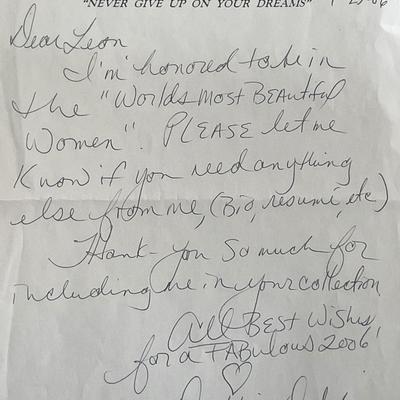 "NEVER GIVE UP ON YOUR DREAMS"
Dear Leon
I'm honored to be in
the "Worlds Most Beautiful
Women". PLEASE let me
Know if you need anything
else from me, (Bio, resumé, etc)
Thank-you so much for
including me in your collection
All Best Wishes,
for a FABulous 2006